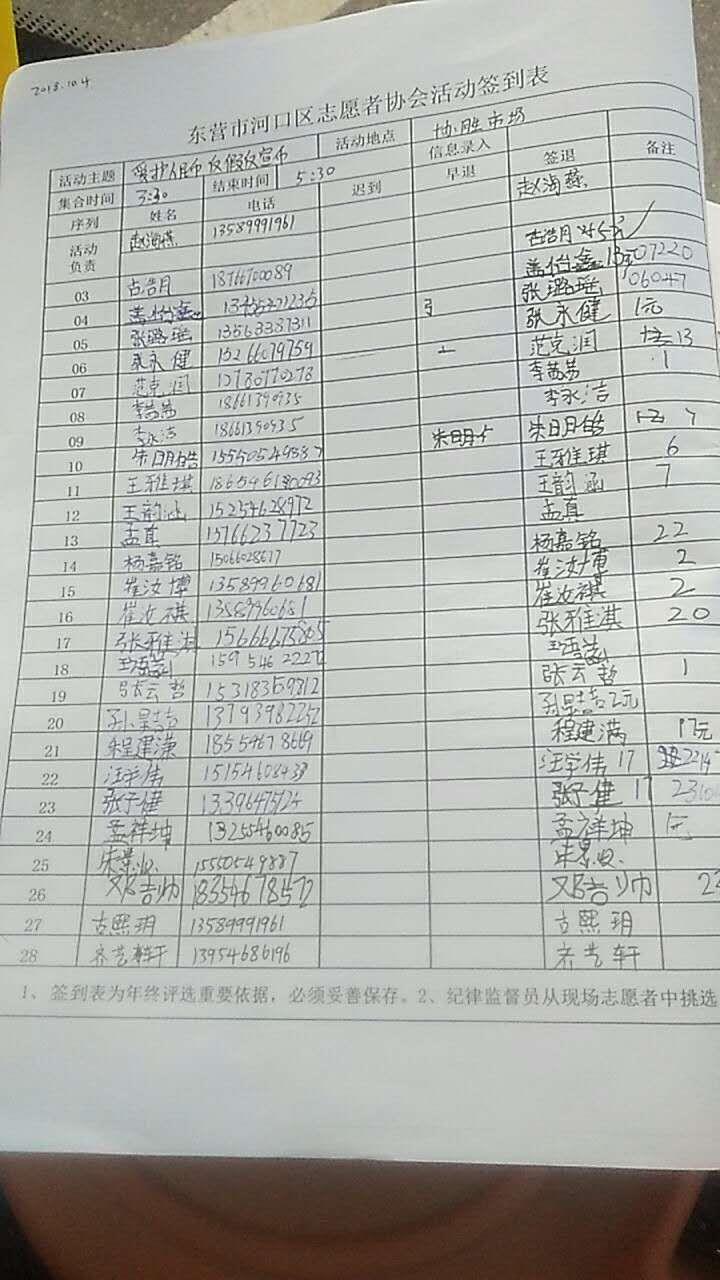 2018.10.4
东营市河口区志愿者协会活动签到表
活动主题 爱护人民币 反假反宣币 活动地点 协胜市场
集合时间 3:30 结束时间 5:30 信息录入
序列 姓名 电话 迟到 早退 签退 备注
活动负责 赵海燕 13589991961 赵海燕
03 古浩月 18766700089 古浩月
04 盖怡鑫 盖怡鑫 07220
05 张璐瑶 13563387311 张璐瑶 06047
06 张永健 15266079759 张永健 1元
07 范克润 范克润
08 李茜茜 18661390935 李茜茜 1
09 李永洁 18661390935 李永洁
10 朱明皓 15550549887 朱明皓
11 王雅琪 王雅琪 6
12 王韵涵 15254628972 王韵涵 7
13 孟真 15766237723 孟真
14 杨嘉铭 15066028677 杨嘉铭 22
15 崔汝博 13589960681 崔汝博 2
16 崔汝祺 13589960681 崔汝祺 2
17 张雅淇 张雅淇 20
18 159 546 22272
19 张云哲 15318359812 张云哲 1
20 13793982252 2元
21 程建潇 18554678669 程建满 17元
22 汪学伟 汪学伟 17
23 张子健 张子健 17
24 孟祥坤 13255460085 孟祥坤 1元
25 15550549887
26 邓吉帅 18354678572 邓吉帅
27 古熙玥 13589991961 古熙玥
28 齐艺轩 13954686196 齐艺轩
1、签到表为年终评选重要依据，必须妥善保存。2、纪律监督员从现场志愿者中挑选